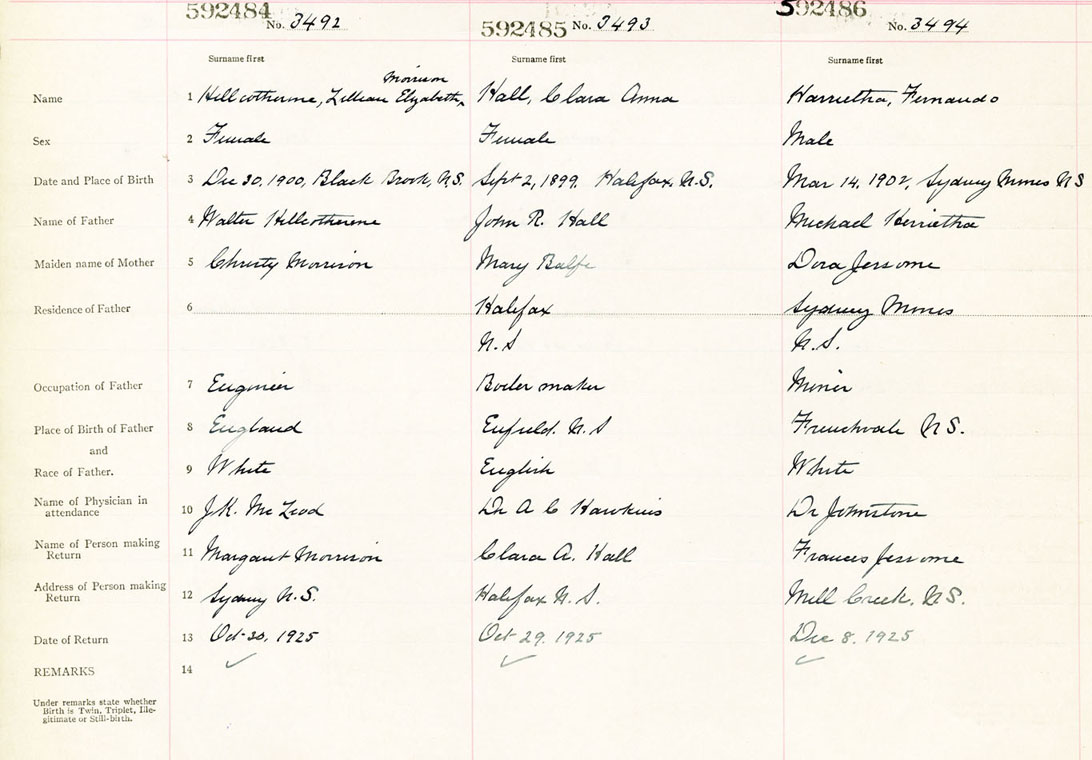 592484 No. 3492 592485 No. 3493 592486 No. 3494
Surname first Surname first Surname first
Morrison
Name 1 Hillcotherme, Lillian Elizabeth, Hall, Clara Anna Harrietha, Fernando
Sex 2 Female Female Male
Date and Place of Birth 3 Dec 30, 1900, Black Brook, N.S. Sept 2, 1899. Halifax, N.S. Mar 14, 1902, Sydney Mines N S
Name of Father 4 Walter John R. Hall Michael Herrietha
Maiden name of Mother 5 Christy Morrison Mary Balfe Dora Jessome
Residence of Father 6 Halifax Sydney Mines
N.S N.S.
Occupation of Father 7 Engineer Boiler maker Miner
Place of Birth of Father 8 England Enfield. N.S Frenchvale N S.
and
Race of Father. 9 White English White
Name of Physician in
attendance 10 J.K. McLeod Dr A C Hawkins Dr Johnstone
Name of Person making
Return 11 Margaret Morrison Clara A. Hall Frances Jessome
Address of Person making
Return 12 Sydney N.S. Halifax N.S. Mill Creek, N.S.
Date of Return 13 Oct 30, 1925 Oct 29. 1925 Dec 8. 1925
REMARKS 14
Under remarks state whether
Birth is Twin, Triplet, Ille-
gitimate or Still-birth.